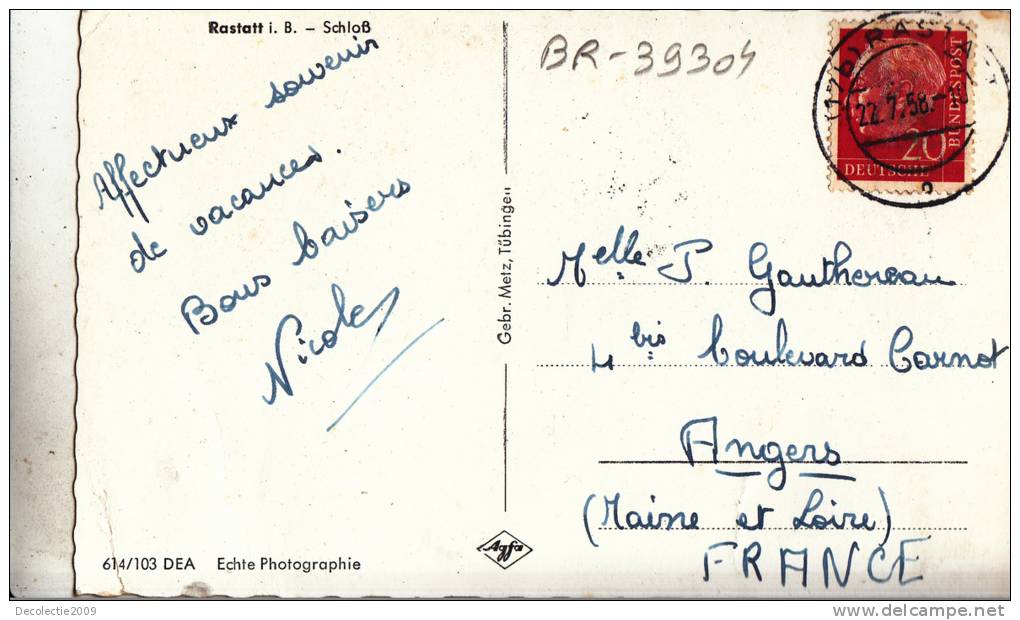 Rastatt i. B. – Schloß
BR-39304
Affectueux souvenir
de vacances.
Bons baisers
Nicole
Gebr. Metz, Tübingen
RASTATT
22.7.58.-
20
DEUTSCHE
BUNDESPOST
Melle P. Gauthereau
4 bis boulevard Carnot
Angers
(Maine et Loire)
FRANCE
614/103 DEA Echte Photographie
Agfa
Decolectie2009
www.delcampe.net